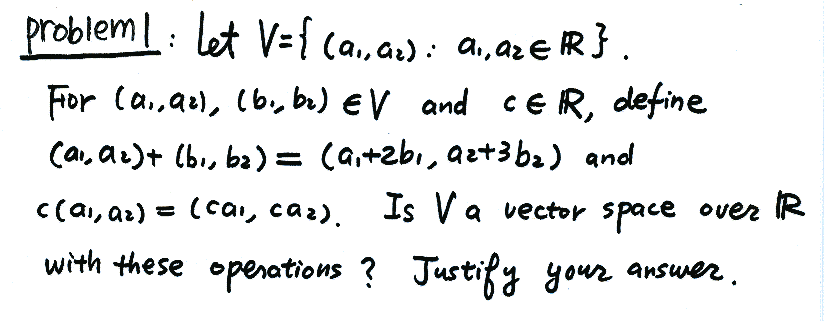 problem 1: Let V={(a₁,a₂): a₁,a₂∈ℝ}.
For (a₁,a₂), (b₁,b₂)∈V and c∈ℝ, define
(a₁,a₂)+(b₁,b₂)=(a₁+2b₁, a₂+3b₂) and
c(a₁,a₂)=(ca₁, ca₂). Is V a vector space over ℝ
with these operations? Justify your answer.